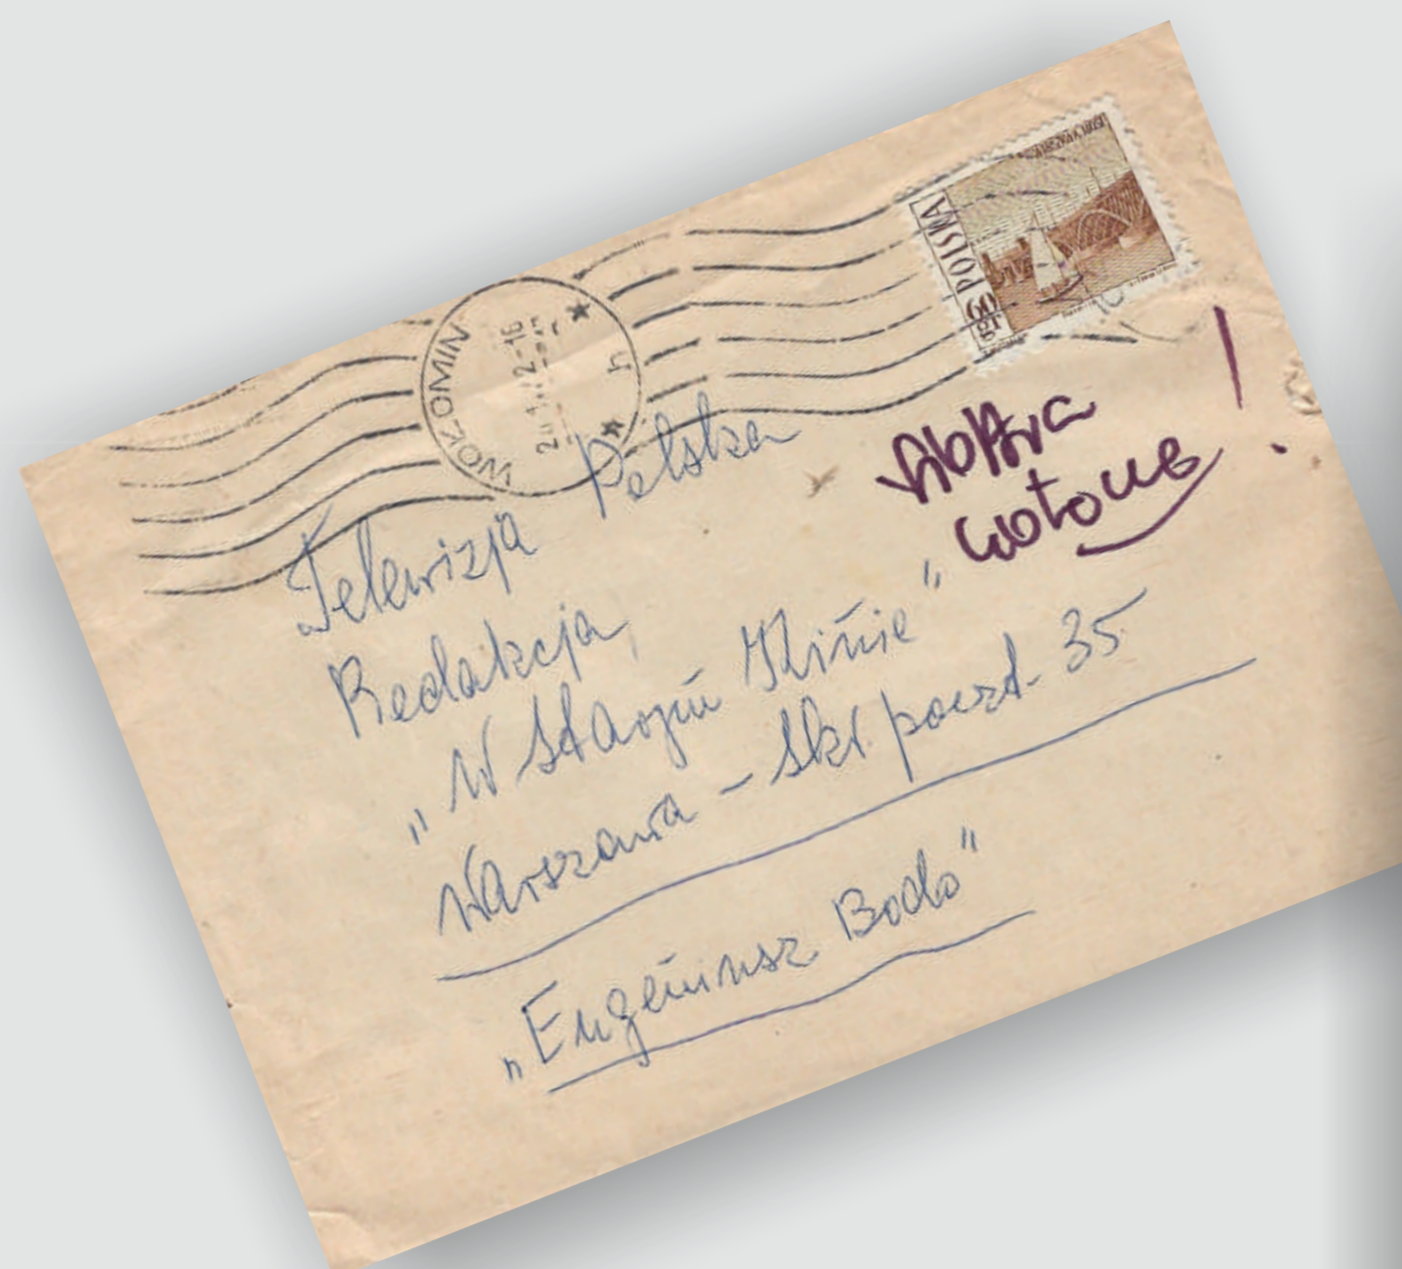 WOŁOMIN
POLSKA
60 GR
Telewizja Polska
Redakcja
„W Starym Kinie"
Warszawa - Skr. poczt. 35
„Eugeniusz Bodo"